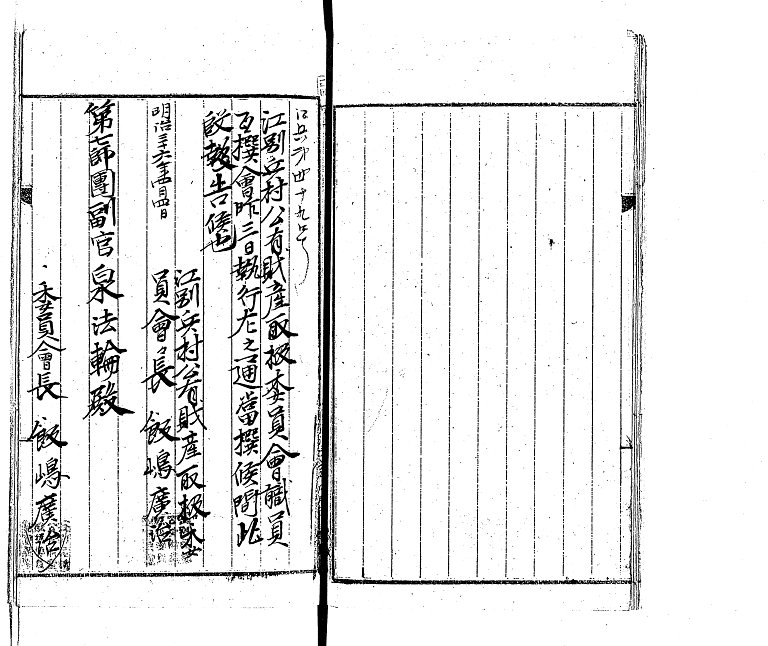 江兵第四十九号
江別兵村公有財産取扱委員會職員
互撰會昨三日執行左之通當撰候間此
段報告候也
江別兵村公有財産取扱委
員會長 飯嶋廣治
明治三十六年四月四日
第七師團副官泉法輪殿
委員會長 飯嶋廣治